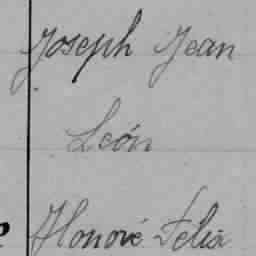 Joseph Jean
León
Honoré Felix